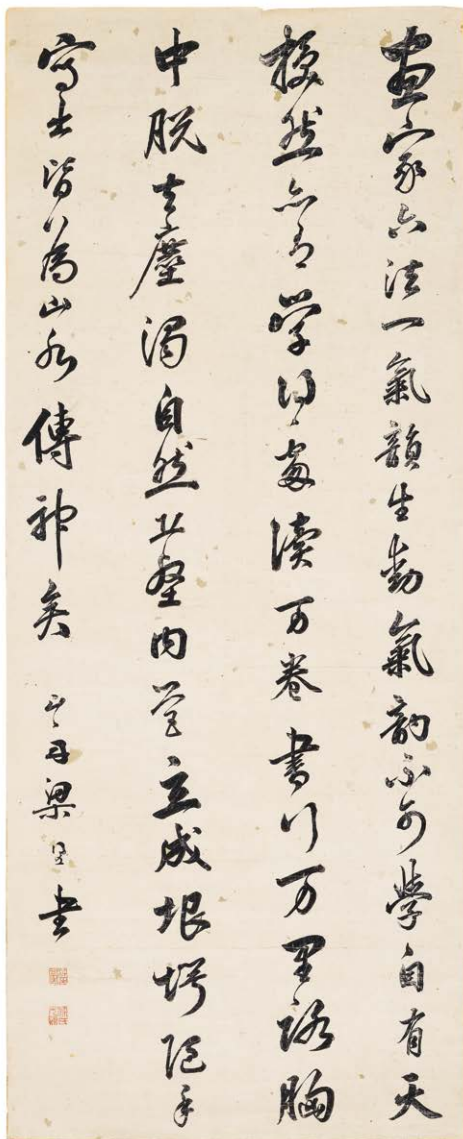 畫家六法一氣韻生動氣韵不可學自有天
授然亦有学得處讀万卷書行万里路胸
中脫去塵濁自然丘壑内营立成垠堮随手
寫出皆為山水傳神矣 山舟梁同書